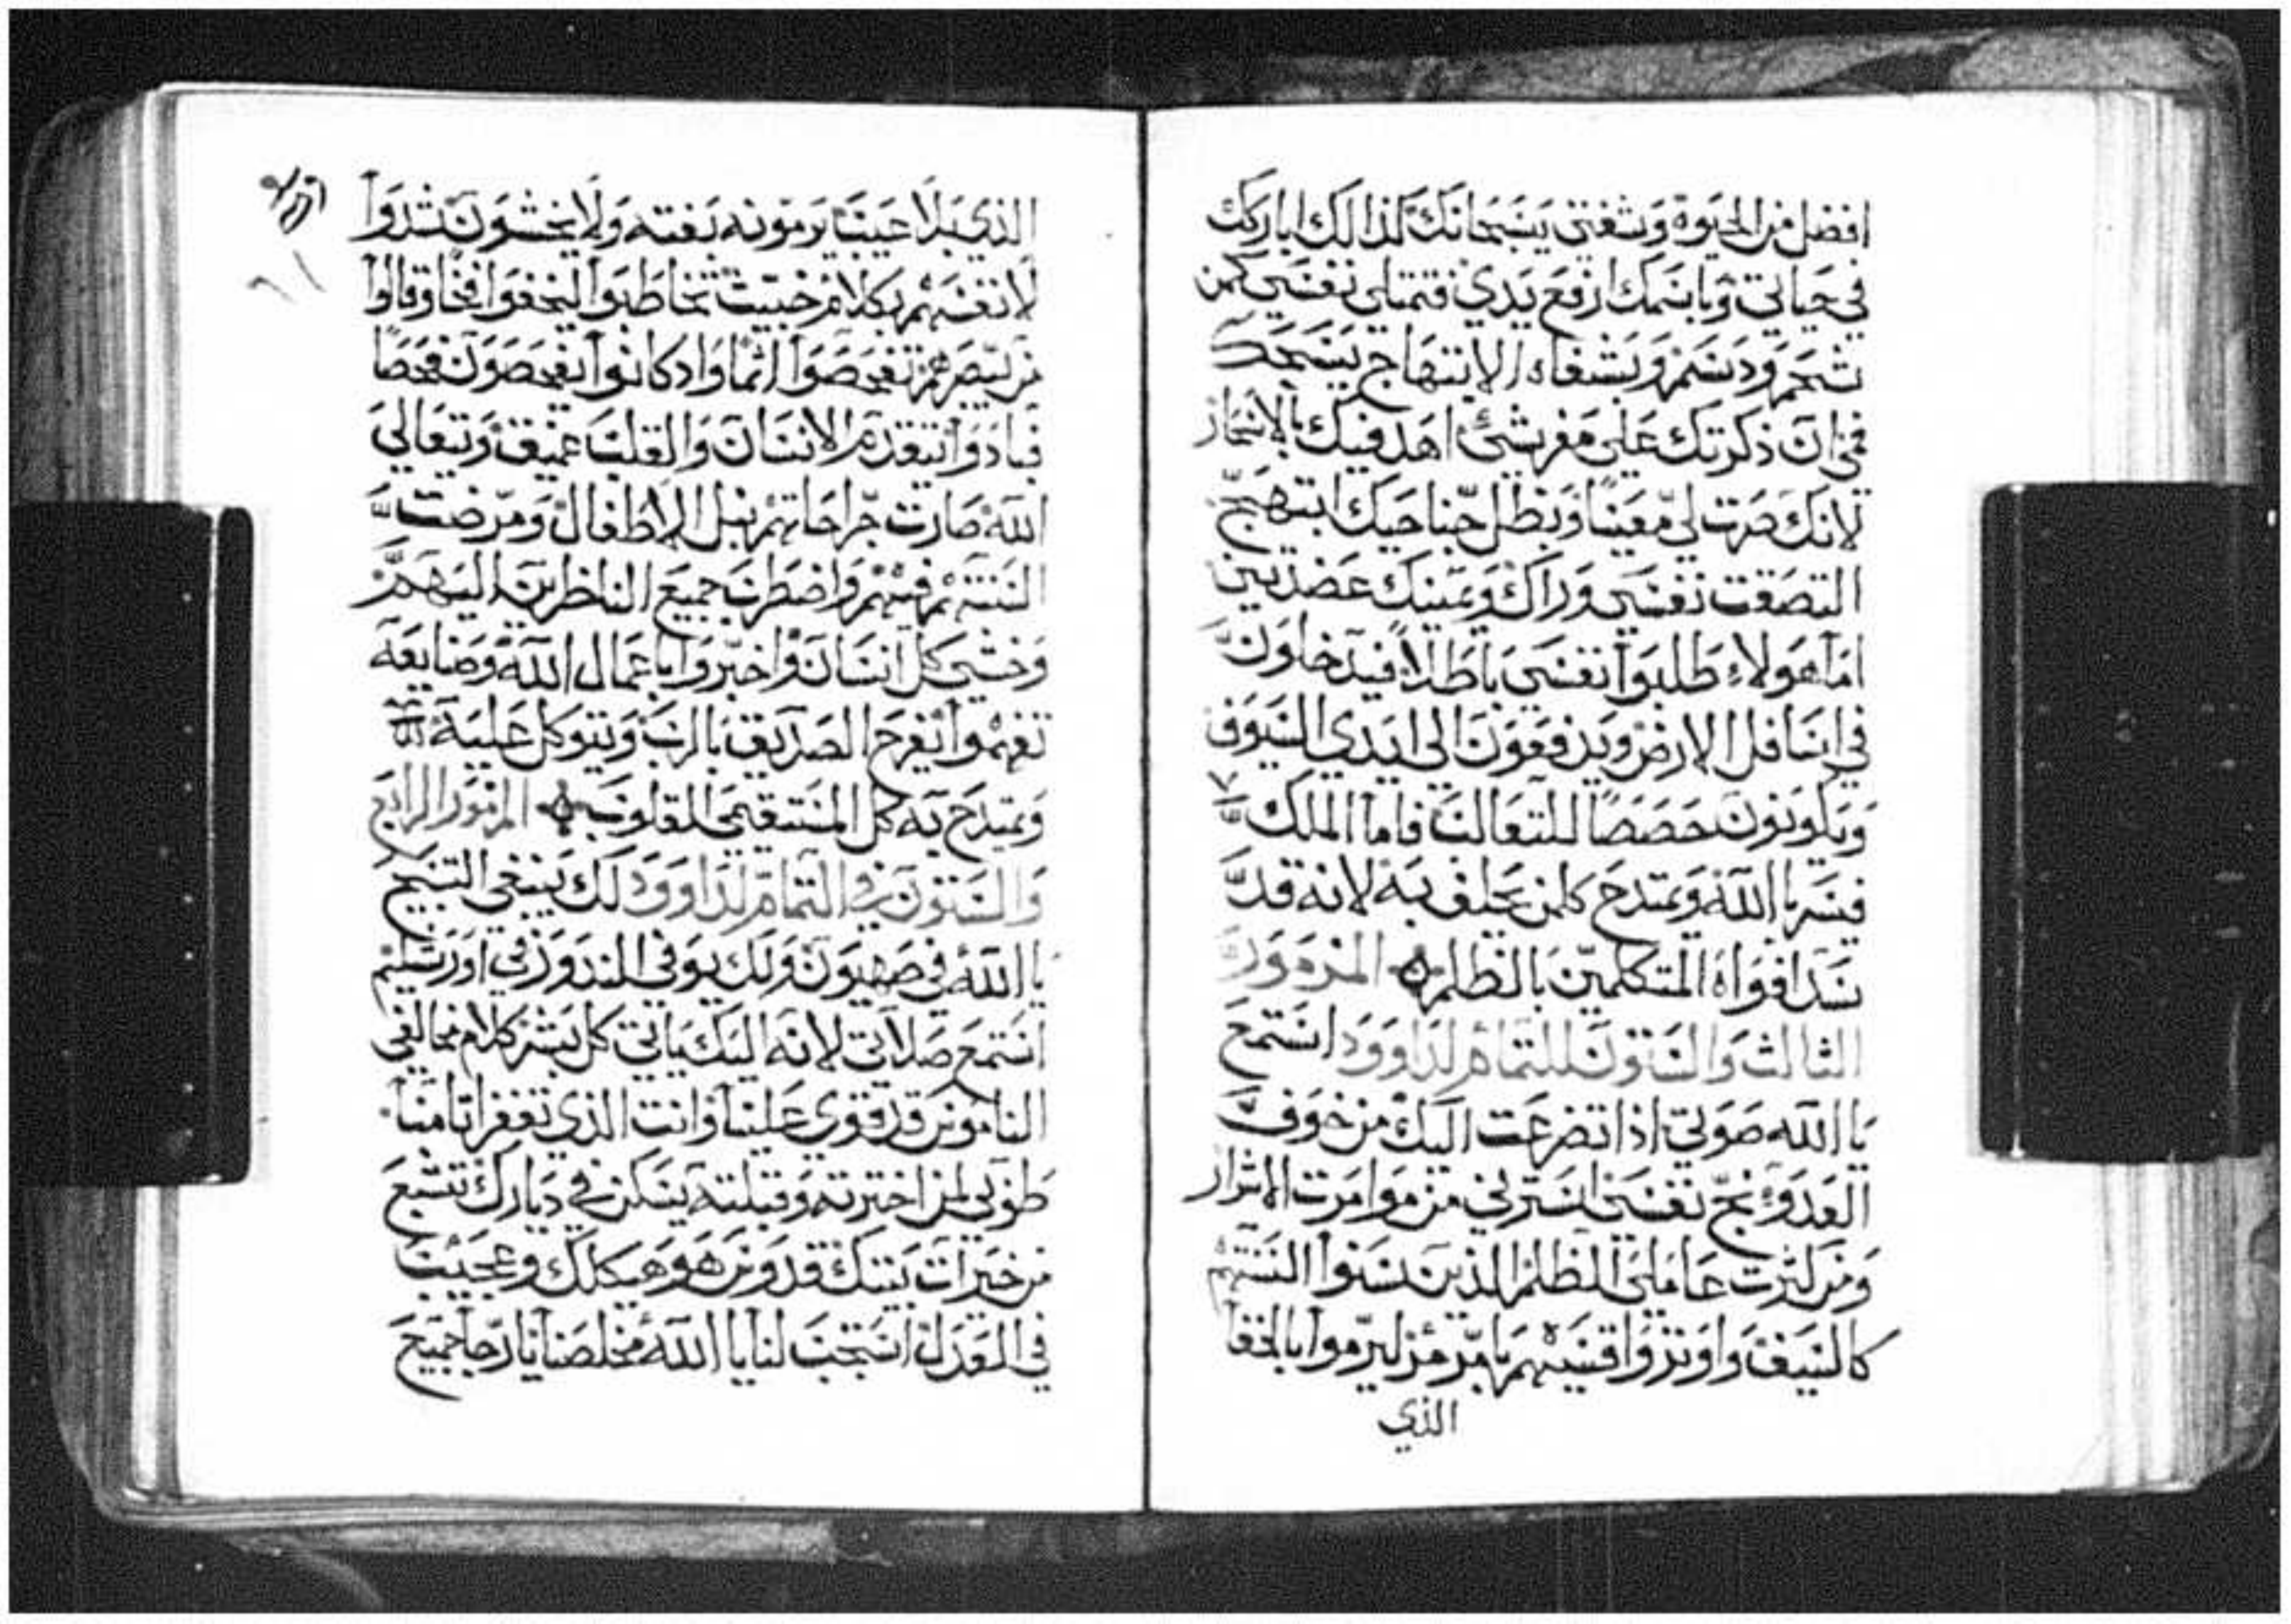 افضل من الحيوة وشفتي يسبحانك كذالك اباركك
في حياتي وباسمك ارفع يدي فتمتلي نفسي كمن
شحم ودسم وبشفاه الابتهاج يسبحك
فمي ان ذكرتك على مفرشي اهد فيك بالاسحار
لانك صرت لي معينا وبظل جناحيك ابتهج
التصقت نفسي وراك ويمينك عضدتني
اما هولاء طلبوا نفسي باطلا فيدخلون
في اسافل الارض ويدفعون الى ايدي السيوف
ويكونون حصصا للثعالب فاما الملك
فيسر بالله ويمتدح كلمن يحلف به لانه قد
سد افواه المتكلمين بالظلم المزمور
الثالث والستون للتمام لداوود استمع
يا الله صوتي اذا تضرعت اليك من خوف
العدو نج نفسي استرني من موامرت الاشرار
ومن كثرت عاملي الظلم الذين سنوا السنتهم
كالسيف واوتروا قسيهم بامر مر ليرموا بالخفا
الذي
الذي بلا عيب يرمونه بغته ولا يخشون شدوا
لانفسهم بكلام خبيث تخاطبوا ليخفوا فخا وقالوا
من يبصرهم تفحصوا اثما واد كانوا يفحصون فحصا
فبادوا يتقدم الانسان والقلب عميق ويتعالي
الله صارت جراحاتهم نبل الاطفال ومرضت
السنتهم فيهم واضطرب جميع الناظرين اليهم
وخشي كل انسان واخبروا باعمال الله وصنايعه
تفهموا يفرح الصديق بالرب ويتوكل عليه
ويمتدح به كل المستقيمي القلوب المزمور الرابع
والستون في التمام لداوود لك ينبغي التسبيح
يا الله في صهيون ولك يوفي النذور في اورشليم
استمع صلاتي لانه اليك ياتي كل بشر كلام مخالفي
الناموس قد قوي علينا وانت الذي تغفر اثامنا
طوبي لمن اخترته وقبلته يسكن في ديارك نشبع
من خيرات بيتك قدوس هو هيكلك وعجيب
في العدل استجب لنا يا الله مخلصنا يا رجا جميع